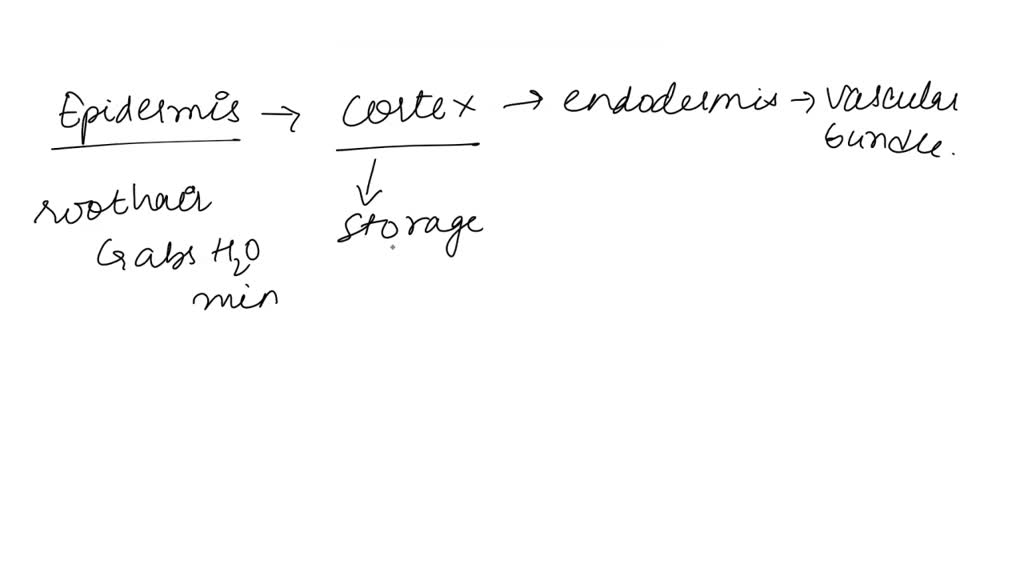 Epidermis → cortex → endodermis → vascular
bundle.
roothair
↓
storage
↳ abs H₂O
min